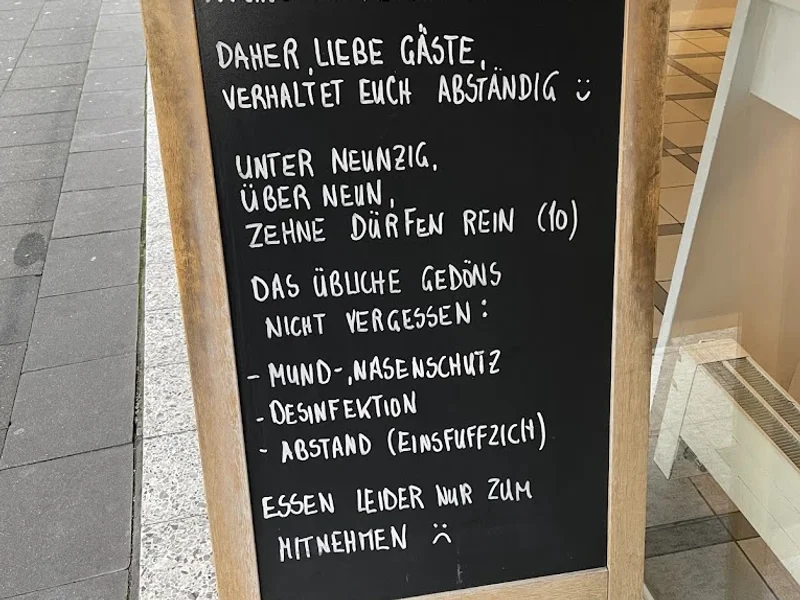 DAHER, LIEBE GÄSTE,
VERHALTET EUCH ABSTÄNDIG ☺
UNTER NEUNZIG,
ÜBER NEUN,
ZEHNE DÜRFEN REIN (10)
DAS ÜBLICHE GEDÖNS
NICHT VERGESSEN:
- MUND-, NASENSCHUTZ
- DESINFEKTION
- ABSTAND (EINSFUFFZICH)
ESSEN LEIDER NUR ZUM
MITNEHMEN ☹